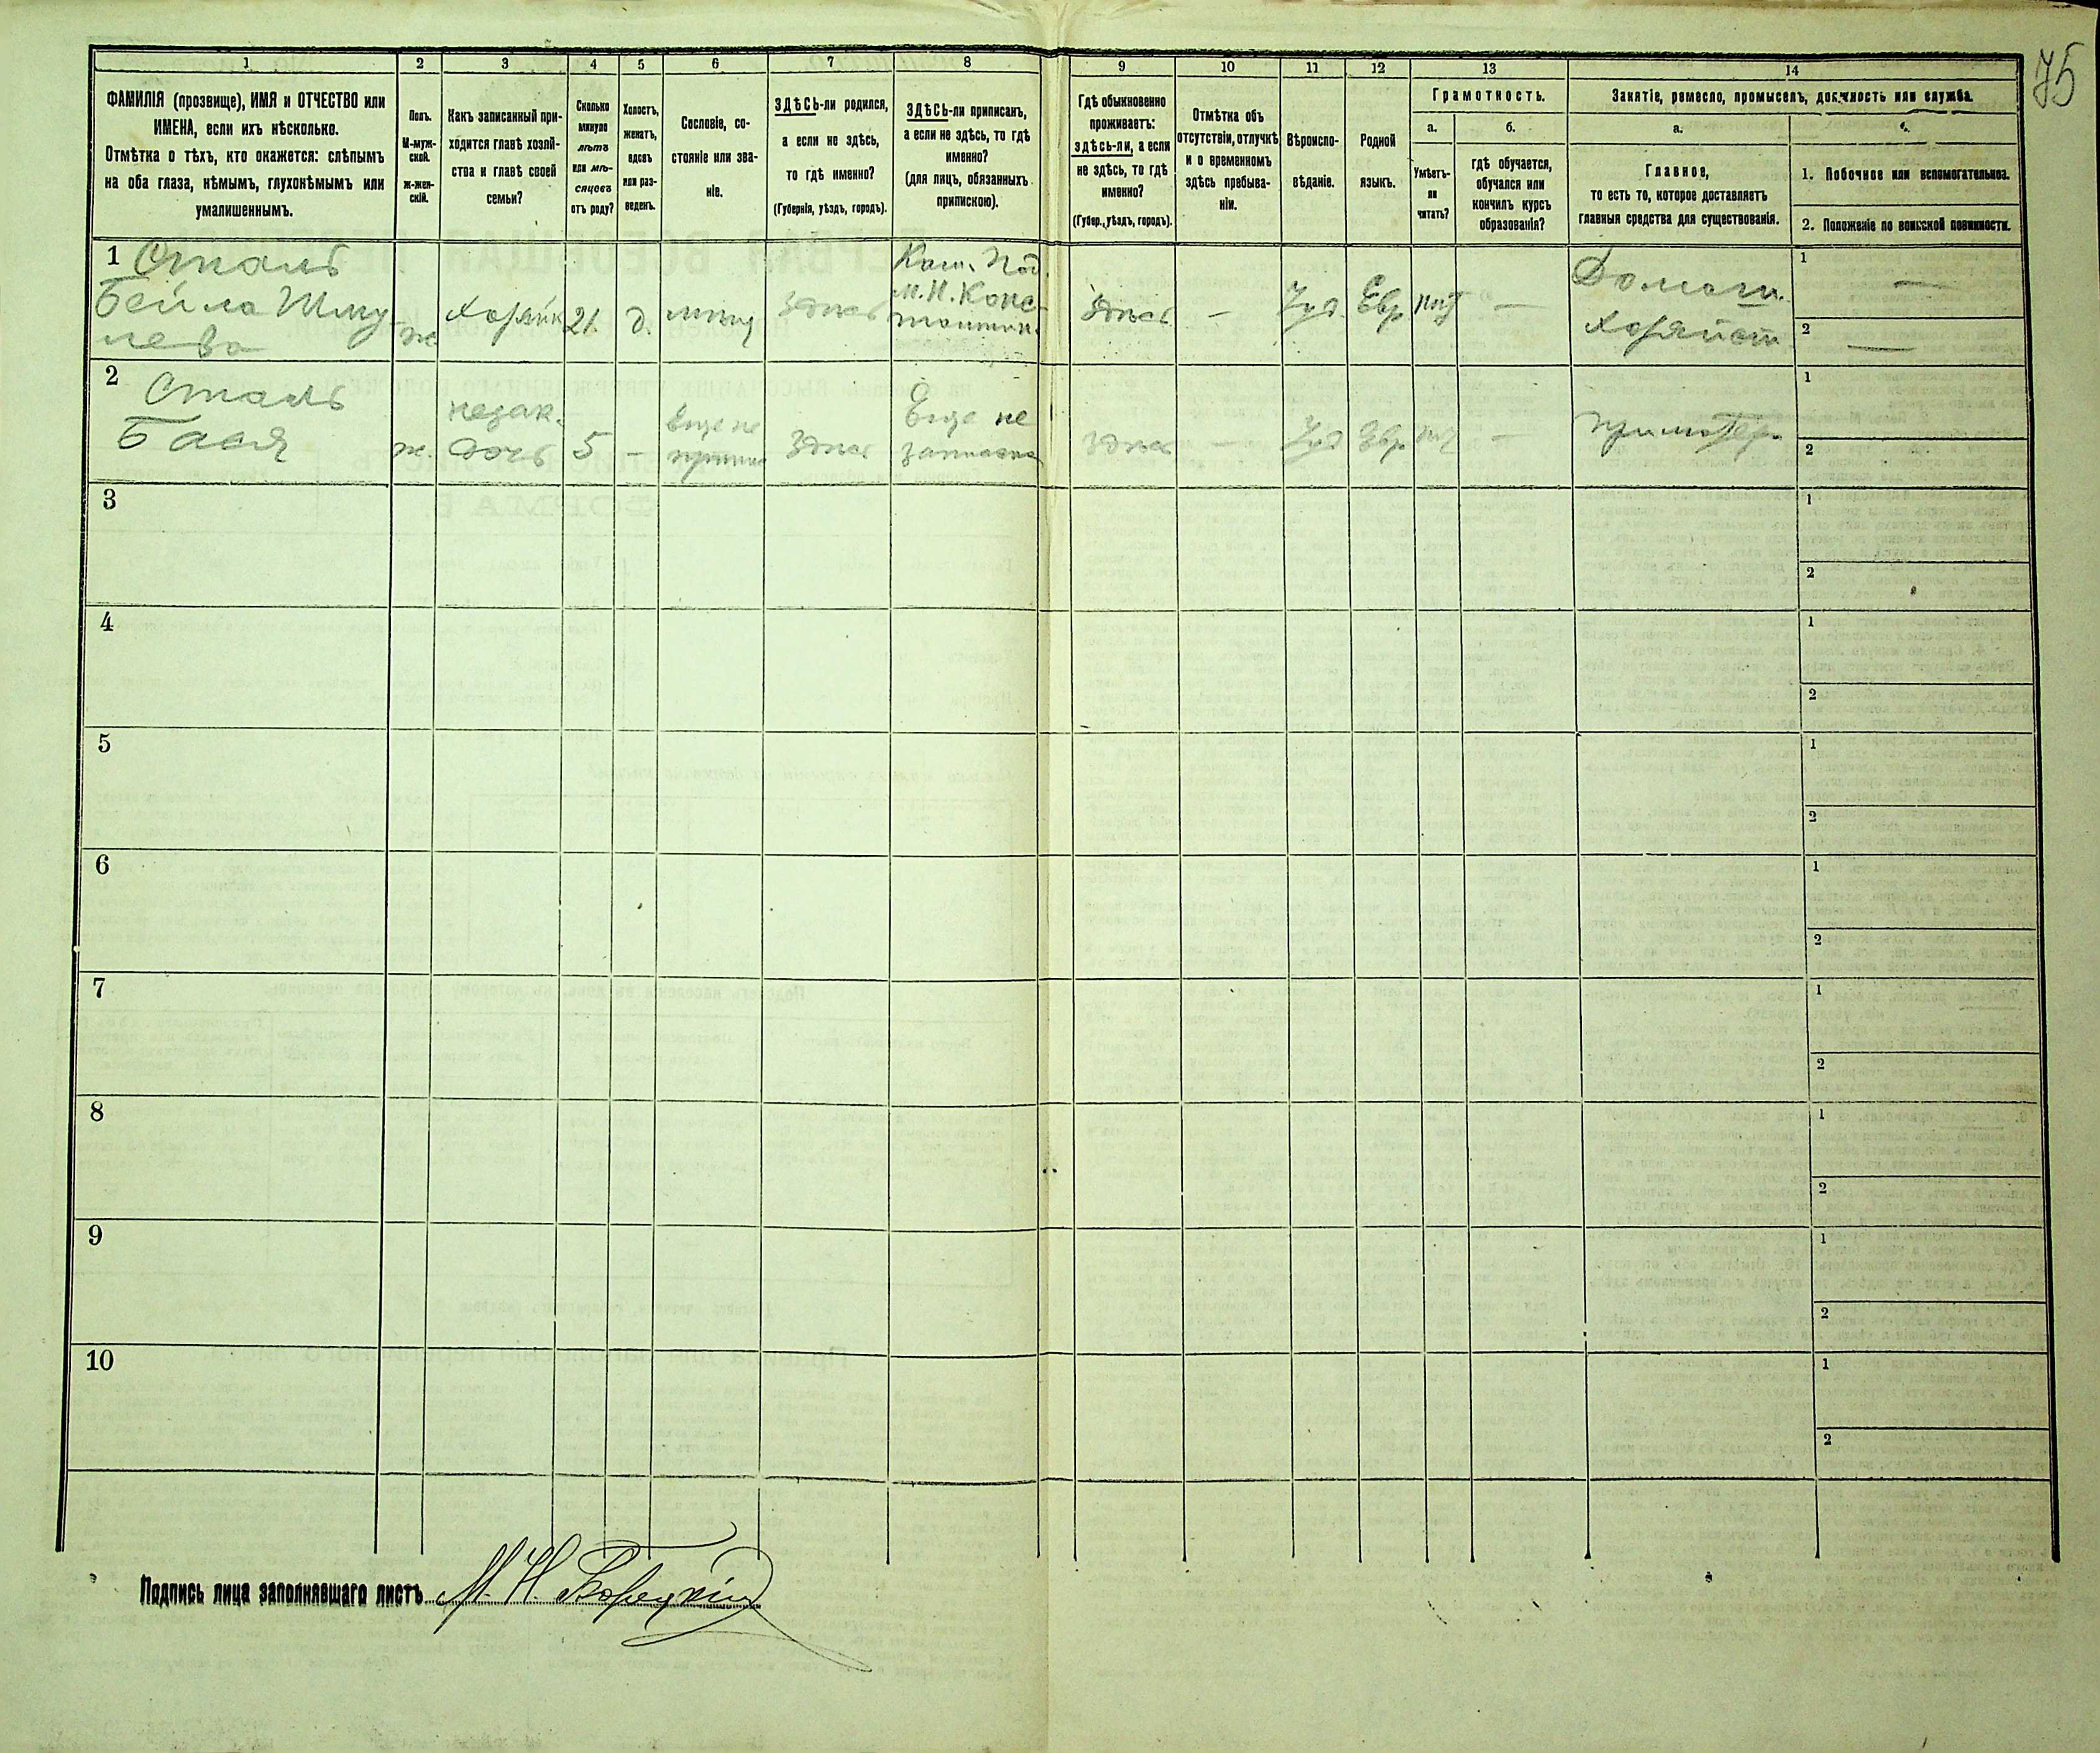 75
1 2 3 4 5 6 7 8 9 10 11 12 13 14
ФАМИЛІЯ (прозвище), ИМЯ и ОТЧЕСТВО или
ИМЕНА, если ихъ нѣсколько.
Отмѣтка о тѣхъ, кто окажется: слѣпымъ
на оба глаза, нѣмымъ, глухонѣмымъ или
умалишеннымъ.
Полъ.
М-муж-
ской.
ж-жен-
скій.
Какъ записанный при-
ходится главѣ хозяй-
ства и главѣ своей
семьи?
Сколько
минуло
лѣтъ
или мѣ-
сяцевъ
отъ роду?
Холостъ,
женатъ,
вдовъ
или раз-
веденъ.
Сословіе, со-
стояніе или зва-
ніе.
ЗДѢСЬ-ли родился,
а если не здѣсь,
то гдѣ именно?
(Губернія, уѣздъ, городъ).
ЗДѢСЬ-ли приписанъ,
а если не здѣсь, то гдѣ
именно?
(для лицъ, обязанныхъ
припискою).
Гдѣ обыкновенно
проживаетъ:
здѣсь-ли, а если
не здѣсь, то гдѣ
именно?
(Губер., уѣздъ, городъ).
Отмѣтка объ
отсутствіи, отлучкѣ
и о временномъ
здѣсь пребыва-
ніи.
Вѣроиспо-
вѣданіе.
Родной
языкъ.
Грамотность.
а.
Умѣетъ-
ли
читать?
б.
гдѣ обучается,
обучался или
кончилъ курсъ
образованія?
Занятіе, ремесло, промыселъ, должность или служба.
а.
Главное,
то есть то, которое доставляетъ
главныя средства для существованія.
б.
1. Побочное или вспомогательное.
2. Положеніе по воинской повинности.
1 Сталь
Бейла Шму
лева
ж
Хозяйк
21.
д.
здѣсь
Кам. Под.
м. Н. Конс-
тантин.
здѣсь
—
Іуд.
Евр
нѣт
—
Домаш.
Хозяйст
1 —
2 —
2 Сталь
Бася
ж.
незак.
дочь
5
—
Еще не
здѣсь
Еще не
записана
здѣсь
—
Іуд
Евр
нѣт
—
1
2
3
1
2
4
1
2
5
1
2
6
1
2
7
1
2
8
1
2
9
1
2
10
1
2
Подпись лица заполнявшаго листъ